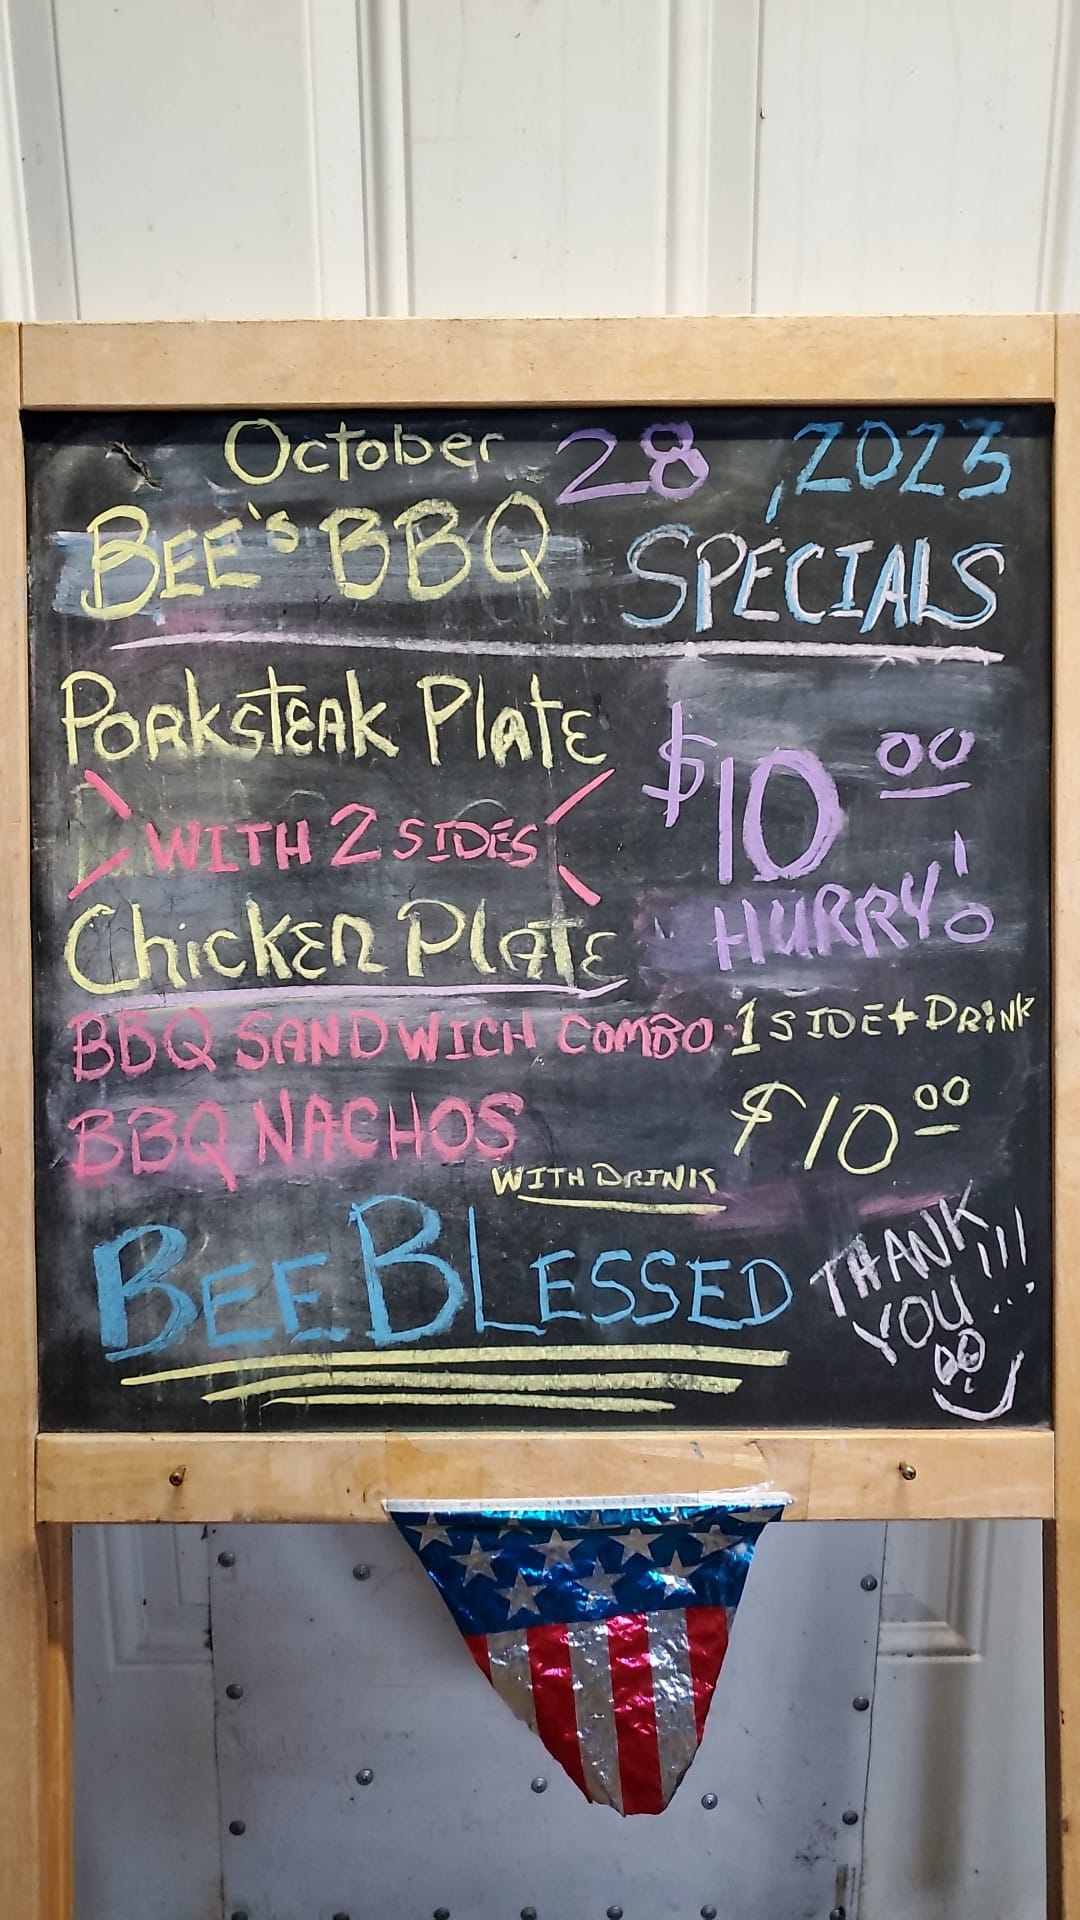 October 28, 2023
BEE'S BBQ SPECIALS
PORKSTEAK PLATE
$10.00
WITH 2 SIDES
HURRY!
CHICKEN PLATE
BBQ SANDWICH COMBO · 1 SIDE + DRINK
BBQ NACHOS $10.00
WITH DRINK
BEE BLESSED
THANK
YOU!!!